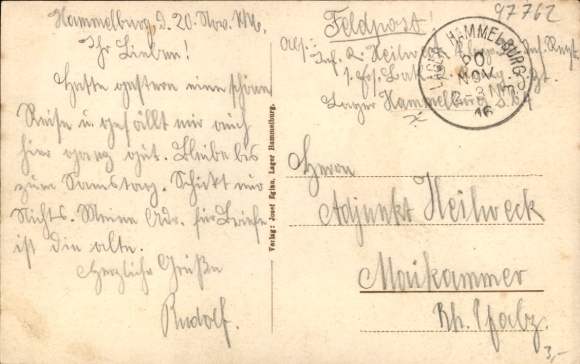 Hammelburg, d. 20. Nov. 1916.
Ihr Lieben!
Hatte gestern eine schöne
Reise u. gefällt mir auch
hier ganz gut. Bleibe bis
zum Samstag. Schickt mir
Nichts. Meine Adr. für Briefe
ist die alte.
Herzliche Grüße
Rudolf.
Verlag: Josef Eglau, Lager Hammelburg.
97762
Feldpost!
Abs.: Inf. R. Heilweck
1. Ers. Batl.
Lager Hammelburg
LAGER HAMMELBURG
20
NOV
2-3 N
16
Herrn
Adjunkt Heilweck
Maikammer
Rh. Pfalz.
3,-